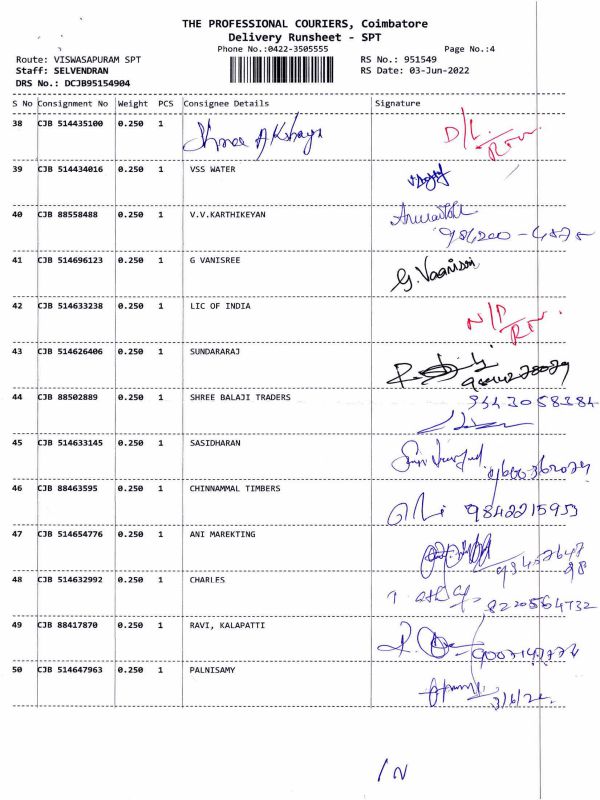 THE PROFESSIONAL COURIERS, Coimbatore
Delivery Runsheet - SPT
Phone No.:0422-3505555 Page No.:4
Route: VISWASAPURAM SPT RS No.: 951549
Staff: SELVENDRAN RS Date: 03-Jun-2022
DRS No.: DCJB95154904
S No Consignment No Weight PCS Consignee Details Signature
38 CJB 514435100 0.250 1 Shree Akshaya D/L RTN
39 CJB 514434016 0.250 1 VSS WATER
40 CJB 88558488 0.250 1 V.V.KARTHIKEYAN
41 CJB 514696123 0.250 1 G VANISREE G. Vaanisri
42 CJB 514633238 0.250 1 LIC OF INDIA N/D RTN
43 CJB 514626406 0.250 1 SUNDARARAJ
44 CJB 88502889 0.250 1 SHREE BALAJI TRADERS 9443058384
45 CJB 514633145 0.250 1 SASIDHARAN
46 CJB 88463595 0.250 1 CHINNAMMAL TIMBERS 9842215953
47 CJB 514654776 0.250 1 ANI MAREKTING
48 CJB 514632992 0.250 1 CHARLES 8220564732
49 CJB 88417870 0.250 1 RAVI, KALAPATTI
50 CJB 514647963 0.250 1 PALNISAMY 3/6/22
/N